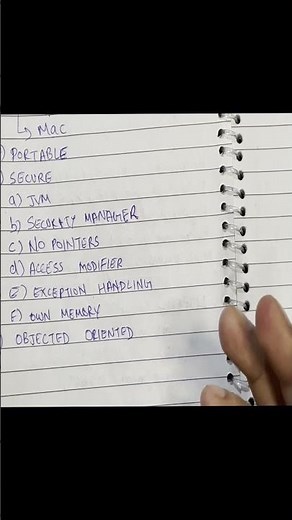 ↳ Mac
) PORTABLE
) SECURE
a) JVM
b) SECURITY MANAGER
c) NO POINTERS
d) ACCESS MODIFIER
E) EXCEPTION HANDLING
F) OWN MEMORY
) OBJECTED ORIENTED